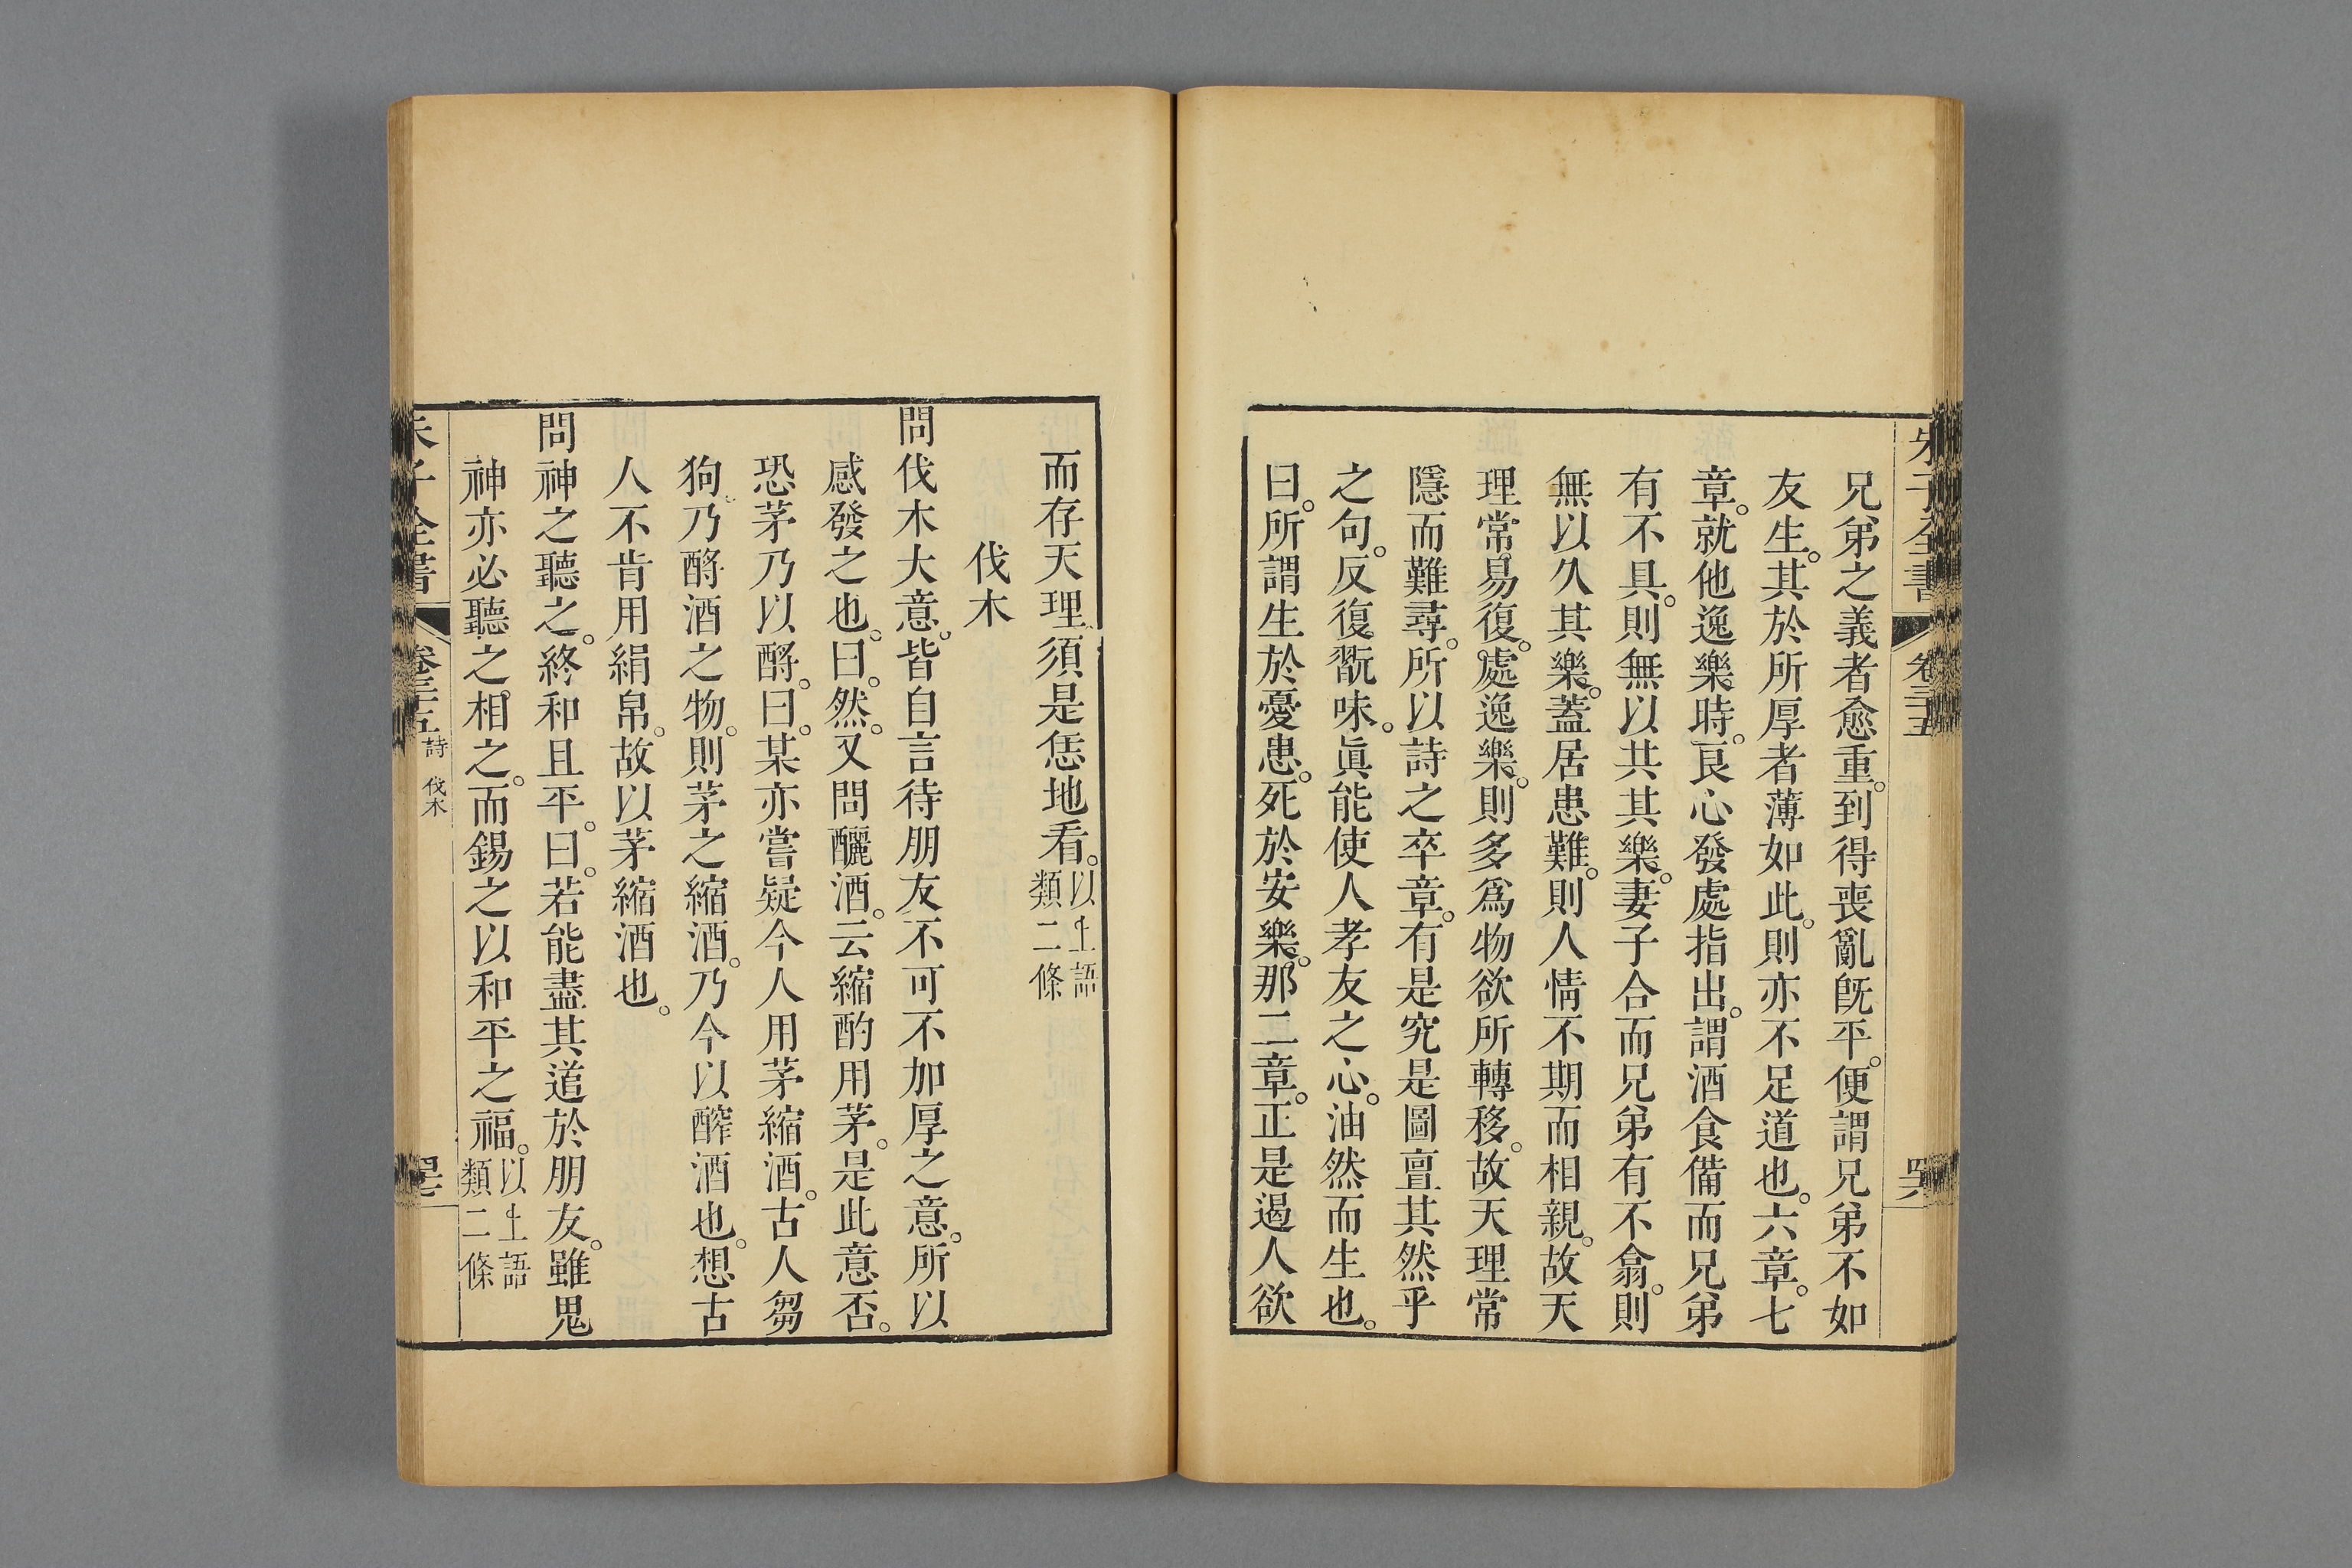 朱子全書 卷三十五 四六
兄弟之義者愈重。到得喪亂旣平。便謂兄弟不如
友生。其於所厚者薄如此。則亦不足道也。六章。七
章。就他逸樂時。良心發處指出。謂酒食備而兄弟
有不具。則無以共其樂。妻子合而兄弟有不翕。則
無以久其樂。蓋居患難。則人情不期而相親。故天
理常易復。處逸樂。則多爲物欲所轉移。故天理常
隱而難尋。所以詩之卒章。有是究是圖亶其然乎
之句。反復翫味。眞能使人孝友之心。油然而生也。
曰。所謂生於憂患。死於安樂。那二章。正是遏人欲
而存天理。須是恁地看。以上語類二條
伐木
問伐木大意。皆自言待朋友不可不加厚之意。所以
感發之也。曰。然。又問釃酒。云縮酌用茅。是此意否。
恐茅乃以酹。曰。某亦嘗疑今人用茅縮酒。古人芻
狗。乃酹酒之物。則茅之縮酒。乃今以醡酒也。想古
人不肯用絹帛。故以茅縮酒也。
問神之聽之。終和且平。曰。若能盡其道於朋友。雖鬼
神亦必聽之相之。而錫之以和平之福。以上語類二條
朱子全書 卷三十五 詩 伐木